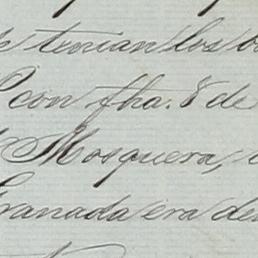 tenian los
con fha. 8 de
Mosquera,
Granada era de